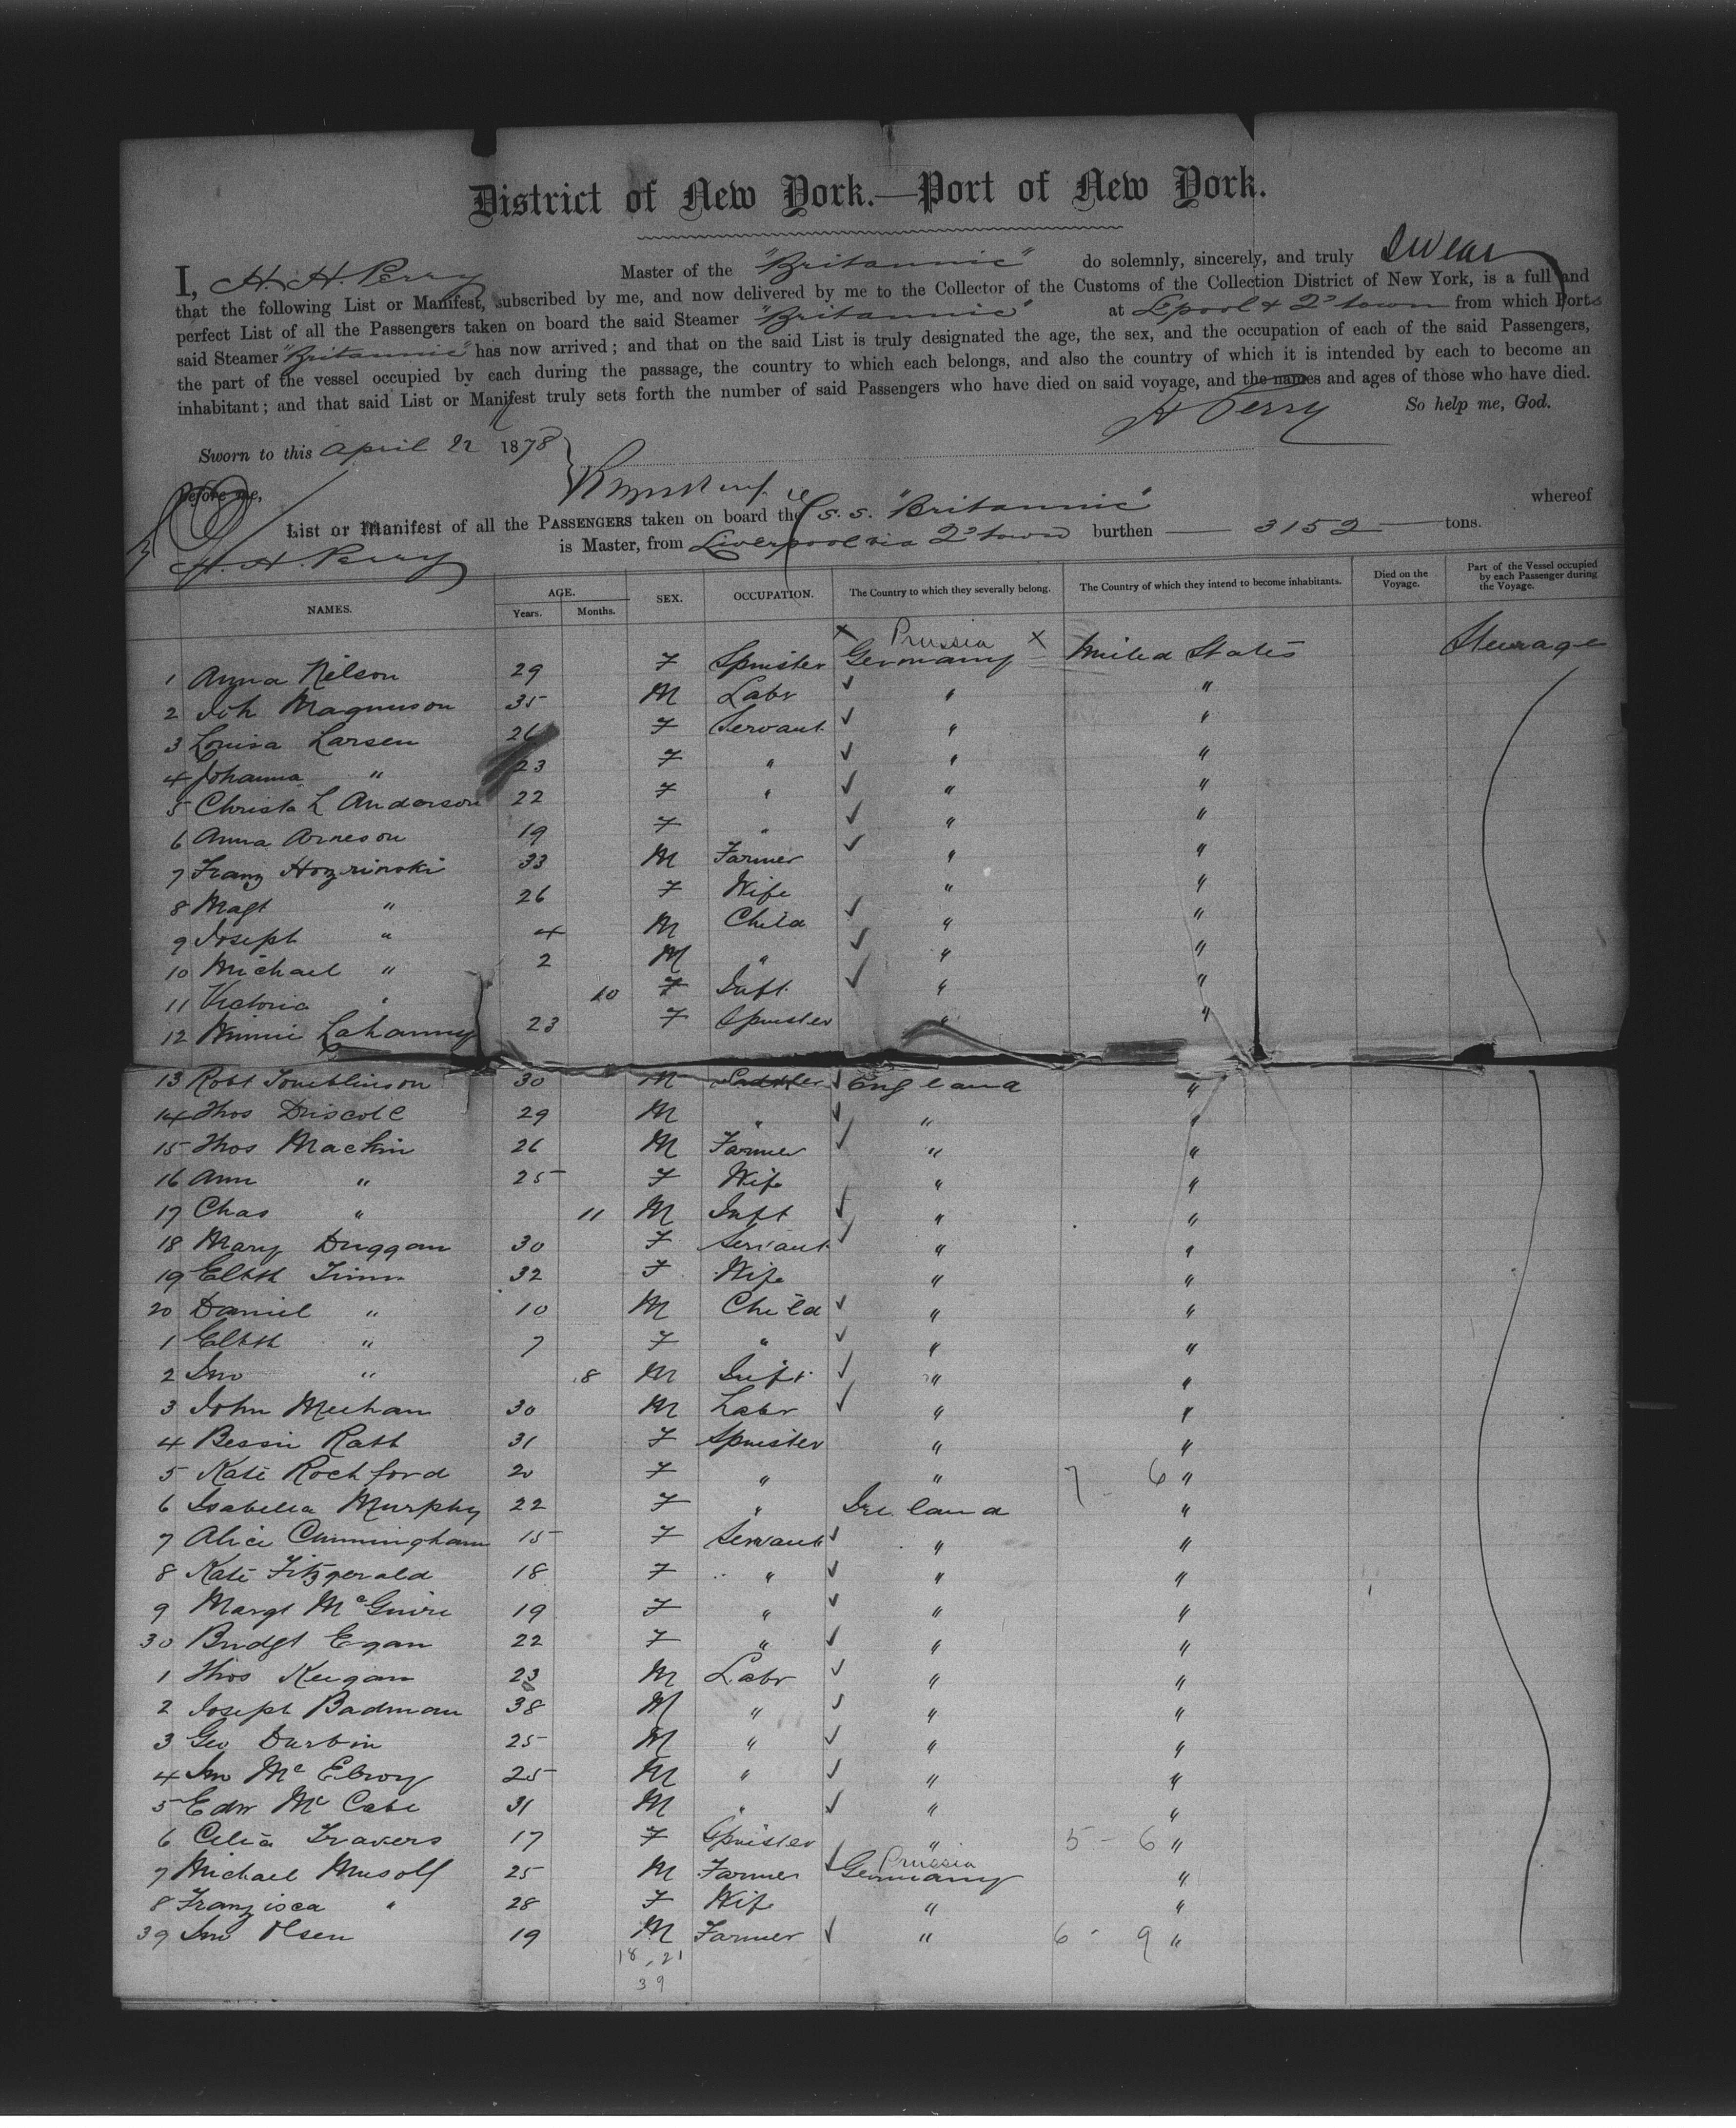 District of New York.—Port of New York.
I, H. H. Perry Master of the "Britannic" do solemnly, sincerely, and truly swear
that the following List or Manifest, subscribed by me, and now delivered by me to the Collector of the Customs of the Collection District of New York, is a full and
perfect List of all the Passengers taken on board the said Steamer "Britannic" at L'pool & Q'town from which Ports
said Steamer "Britannic" has now arrived; and that on the said List is truly designated the age, the sex, and the occupation of each of the said Passengers,
the part of the vessel occupied by each during the passage, the country to which each belongs, and also the country of which it is intended by each to become an
inhabitant; and that said List or Manifest truly sets forth the number of said Passengers who have died on said voyage, and the names and ages of those who have died.
So help me, God.
H Perry
Sworn to this April 22 1878
Before me,
List or Manifest of all the PASSENGERS taken on board the S. S. "Britannic" whereof
H. H. Perry is Master, from Liverpool via Q'town burthen 3152 tons.
NAMES. AGE. Years. Months. SEX. OCCUPATION. The Country to which they severally belong. The Country of which they intend to become inhabitants. Died on the Voyage. Part of the Vessel occupied by each Passenger during the Voyage.
Prussia
1 Anna Nilson 29 F Spinster Germany United States Steerage
2 Joh Magnuson 35 M Labr " "
3 Louisa Larsen 26 F Servant " "
4 Johanna " 23 F " " "
5 Christa L Anderson 22 F " " "
6 Anna Arneson 19 F " " "
7 Franz Hozrinski 33 M Farmer " "
8 Magt " 26 F Wife " "
9 Joseph " 4 M Child " "
10 Michael " 2 M " " "
11 Victoria " 10 F Inft " "
12 Minnie Lahanny 23 F Spinster " "
13 Robt Tomblinson 30 M Saddler England "
14 Thos Driscoll 29 M " " "
15 Thos Mackin 26 M Farmer " "
16 Ann " 25 F Wife " "
17 Chas " 11 M Inft " "
18 Mary Duggan 30 F Servant " "
19 Elbth Finn 32 F Wife " "
20 Daniel " 10 M Child " "
1 Elbth " 7 F " " "
2 Jno " 8 M Inft " "
3 John Meehan 30 M Labr " "
4 Bessie Ratt 31 F Spinster " "
5 Kate Rochford 20 F " " 7 6 "
6 Isabella Murphy 22 F " Ireland "
7 Alice Cunningham 15 F Servant " "
8 Kate Fitzgerald 18 F " " "
9 Margt McGuire 19 F " " "
30 Bridgt Egan 22 F " " "
1 Thos Keegan 23 M Labr " "
2 Joseph Badman 38 M " " "
3 Geo Durbin 25 M " " "
4 Jno Mc Elroy 25 M " " "
5 Edw Mc Cabe 31 M " " "
6 Celia Travers 17 F Spinster " 5 - 6 "
Prussia
7 Michael Musolf 25 M Farmer Germany "
8 Franzisca " 28 F Wife " "
39 Jno Olsen 19 M Farmer " 6 - 9 "
18, 21
39